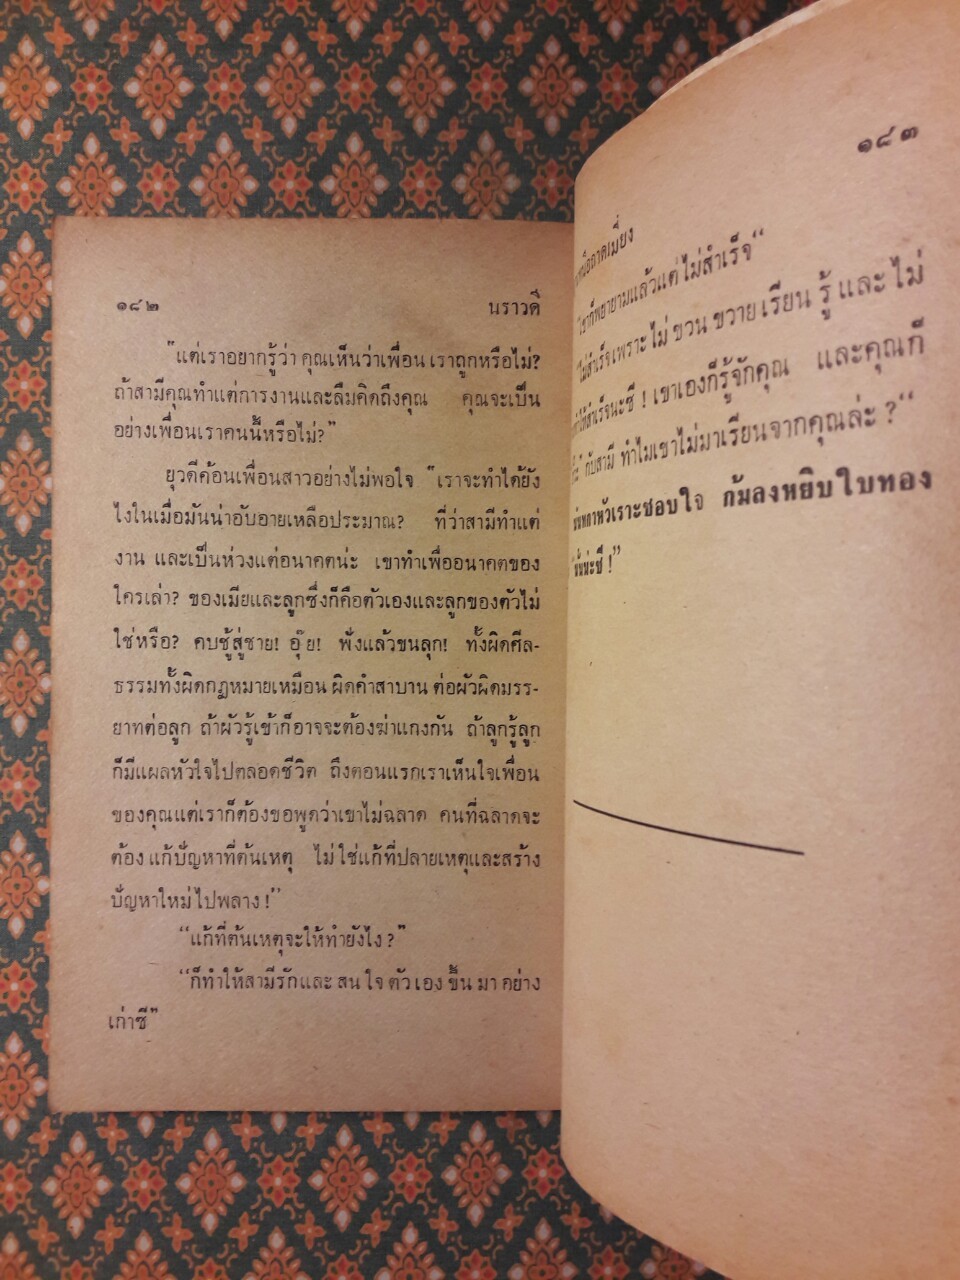 ๑๘๒ นราวดี
"แต่เราอยากรู้ว่า คุณเห็นว่าเพื่อน เราถูกหรือไม่?
ถ้าสามีคุณทำแต่การงานและลืมคิดถึงคุณ คุณจะเป็น
อย่างเพื่อนเราคนนี้หรือไม่?"
ยุวดีค้อนเพื่อนสาวอย่างไม่พอใจ "เราจะทำได้ยัง
ไงในเมื่อมันน่าอับอายเหลือประมาณ? ที่ว่าสามีทำแต่
งาน และเป็นห่วงแต่อนาคตน่ะ เขาทำเพื่ออนาคตของ
ใครเล่า? ของเมียและลูกซึ่งก็คือตัวเองและลูกของตัวไม่
ใช่หรือ? คบชู้สู่ชาย! อุ๊ย! ฟังแล้วขนลุก! ทั้งผิดศีล-
ธรรมทั้งผิดกฎหมายเหมือน ผิดคำสาบาน ต่อผัวผิดมรร-
ยาทต่อลูก ถ้าผัวรู้เข้าก็อาจจะต้องฆ่าแกงกัน ถ้าลูกรู้ลูก
ก็มีแผลหัวใจไปตลอดชีวิต ถึงตอนแรกเราเห็นใจเพื่อน
ของคุณแต่เราก็ต้องขอพูดว่าเขาไม่ฉลาด คนที่ฉลาดจะ
ต้อง แก้ปัญหาที่ต้นเหตุ ไม่ใช่แก้ที่ปลายเหตุและสร้าง
ปัญหาใหม่ไปพลาง!"
"แก้ที่ต้นเหตุจะให้ทำยังไง?"
"ก็ทำให้สามีรักและ สน ใจ ตัว เอง ขึ้น มา อย่าง
เก่าซี"
๑๘๓
"เขาก็พยายามแล้วแต่ไม่สำเร็จ"
"ไม่สำเร็จเพราะ ไม่ ขวน ขวาย เรียน รู้ และ ไม่
ทำให้สำเร็จนะซี! เขาเองก็รู้จักคุณ และคุณก็
กับสามี ทำไมเขาไม่มาเรียนจากคุณล่ะ?"
หัวเราะชอบใจ ก้มลงหยิบใบทอง
"นั่นน่ะซี!"